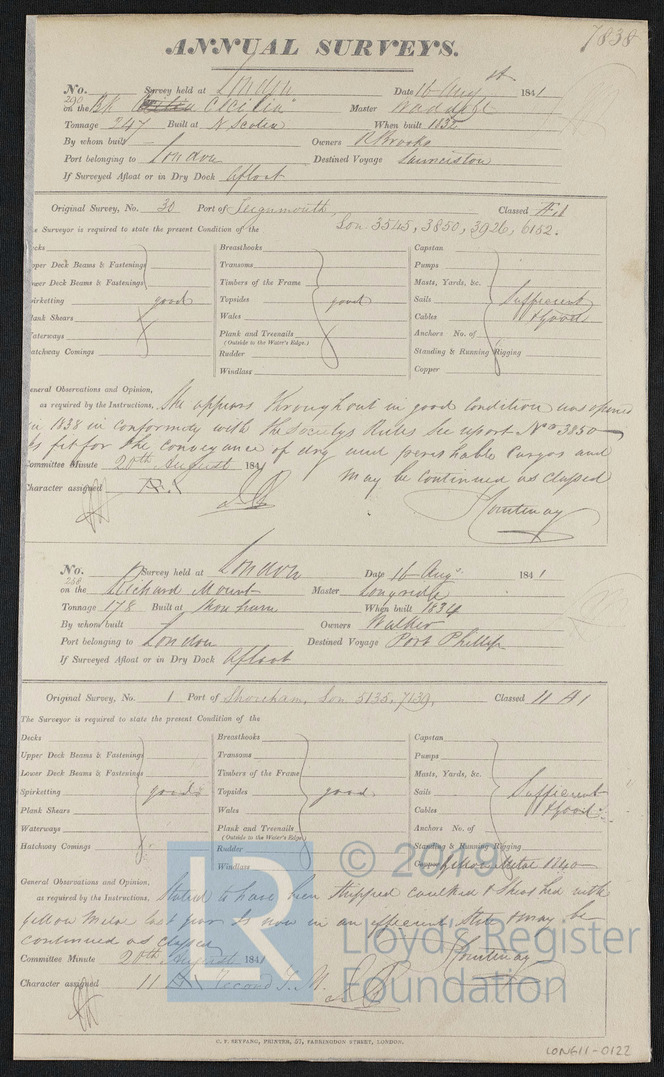 ANNUAL SURVEYS.
7838
No. Survey held at London Date 16 Augst 1841
290
on the Bk Cecilia Master
Tonnage 247 Built at N Scotia When built 1832
By whom built - Owners R Brooks
Port belonging to London Destined Voyage Launceston
If Surveyed Afloat or in Dry Dock Afloat
Original Survey, No. 30 Port of Teignmouth, Classed Æ 1
The Surveyor is required to state the present Condition of the Lon 3545, 3850, 3926, 6152.
Decks Breasthooks Capstan
Upper Deck Beams & Fastenings Transoms Pumps
Lower Deck Beams & Fastenings Timbers of the Frame Masts, Yards, &c.
Spirketting good Topsides good Sails Sufficient
Plank Shears Wales Cables & Good
Waterways Plank and Treenails Anchors No. of
(Outside to the Water's Edge.)
Hatchway Comings Rudder Standing & Running Rigging
Windlass Copper
General Observations and Opinion,
as required by the Instructions. She appears throughout in good condition was opened
in 1838 in conformity with the Societys Rules See report No 3850
Is fit for the conveyance of dry and perishable Cargos and
may be continued as classed
Committee Minute 20th August 1841
Character assigned Æ 1
Courtenay
No. Survey held at London Date 16 Augt 1841
288
on the Richard Mount Master
Tonnage 178 Built at Shoreham When built 1834
By whom built - Owners Walker
Port belonging to London Destined Voyage Port Phillip
If Surveyed Afloat or in Dry Dock Afloat
Original Survey, No. 1 Port of Shoreham, Lon 5135, 7139, Classed 11 A 1
The Surveyor is required to state the present Condition of the
Decks Breasthooks Capstan
Upper Deck Beams & Fastenings Transoms Pumps
Lower Deck Beams & Fastenings Timbers of the Frame Masts, Yards, &c.
Spirketting good Topsides good Sails Sufficient
Plank Shears Wales Cables & Good
Waterways Plank and Treenails Anchors No. of
(Outside to the Water's Edge.)
Hatchway Comings Rudder Standing & Running Rigging
Windlass Copper Yellow Metal 1840
General Observations and Opinion,
as required by the Instructions. Stated to have been stripped caulked & sheathed with
yellow Metal last year Is now in an efficient state & may be
continued as classed
Courtenay
Committee Minute 20th August 1841
Character assigned 11 A 1 Record Y. M.
LR
© 2019
Lloyd's Register
Foundation
C. F. SEYFANG, PRINTER, 57, FARRINGDON STREET, LONDON.
LON611-0122